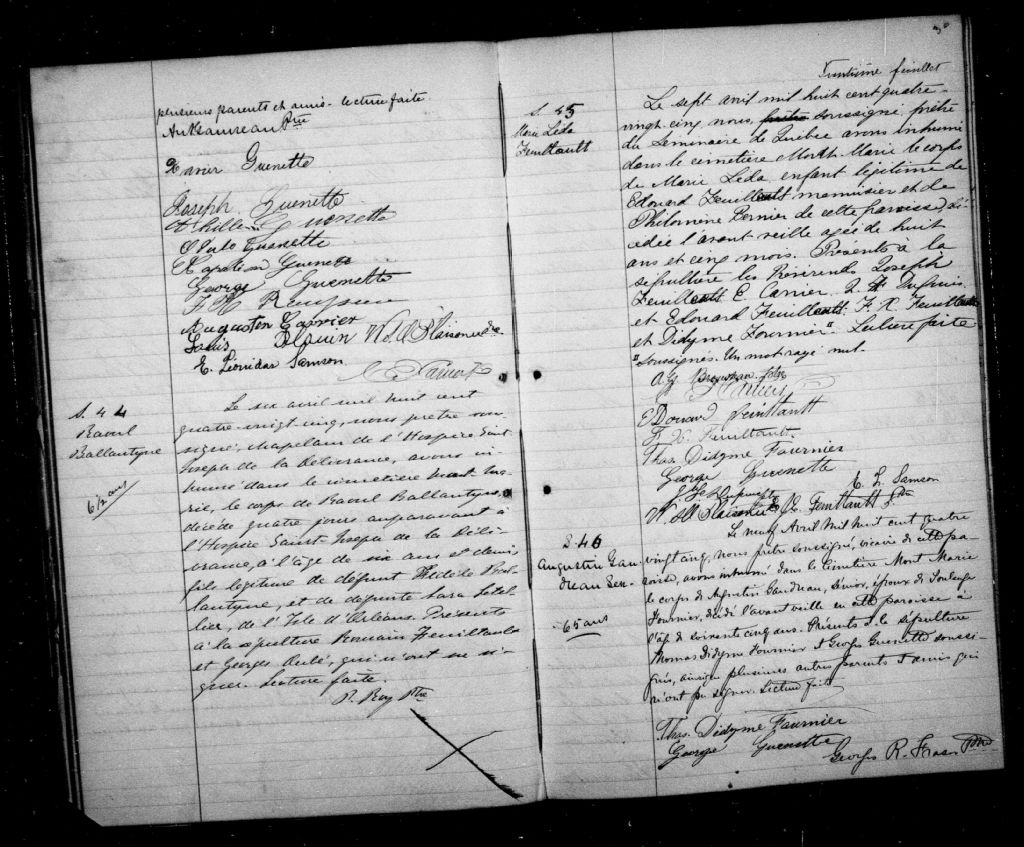 plusieurs parents et amis. lecture faite
Xavier Guenette
Joseph Guenette
Achille Guenette
Guenette
Napoléon Guenette
George Guenette
Augustin Carrier
Louis
E. Léonidas Samson
S. 44
Raoul
Ballantyne
6 1/2 ans
Le six avril mil huit cent
quatre-vingt cinq, nous prêtre sous-
signé, chapelain de l'Hospice Saint
Joseph de la Délivrance, avons in-
humé dans le cimetière Mont Ma-
rie, le corps de Raoul Ballantyne,
décédé quatre jours auparavant à
l'Hospice Saint Joseph de la Déli-
vrance, à l'âge de six ans et demi,
fils légitime de défunt Fidèle Bal-
lantyne, et de défunte Sara Letel-
lier, de l'Isle d'Orléans. Présents
à la sépulture Romain Feuiltault
et Georges Aubé, qui n'ont su si-
gner. Lecture faite.
P. Roy Ptre
30
Trentième feuillet
S. 45
Marie Léda
Feuiltault
Le sept avril mil huit cent quatre-
vingt cinq, nous, soussigné, prêtre
du Seminaire de Québec avons inhumé
dans le cimetière Mont Marie le corps
de Marie Léda enfant légitime de
Edouard Feuiltault menuisier et de
Philomène Bernier de cette paroisse, dé-
cédée l'avant veille agée de huit
ans et cinq mois. Présents à la
sépulture les Révérends Joseph
Feuiltault E. Carrier. J. H. Dupuis
et Edouard Feuiltault F. X. Feuiltault
et Didyme Fournier" Lecture faite
"soussignés. Un mot rayé nul.
Edouard Feuiltault
F. X. Feuiltault
Thos. Didyme Fournier
George Guenette
E. L. Samson
Feuiltault Ptre
S-46
Augustin Gau-
dreau Sen.
65 ans
Le neuf Avril mil huit cent quatre
vingt cinq, nous prêtre soussigné, vicaire de cette pa-
roisse, avons inhumé dans le Cimetière Mont Marie
le corps de Augustin Gaudreau, Sénior, époux de Soulange
Fournier, décédé l'avant veille en cette paroisse à
l'âge de soixante cinq ans. Présents à la sépulture
Thomas Didyme Fournier & Georges Guenette soussi-
gnés, ainsi que plusieurs autres parents & amis qui
n'ont pu signer. Lecture faite
Thos. Didyme Fournier
George Guenette
Georges R. Fraser Ptre